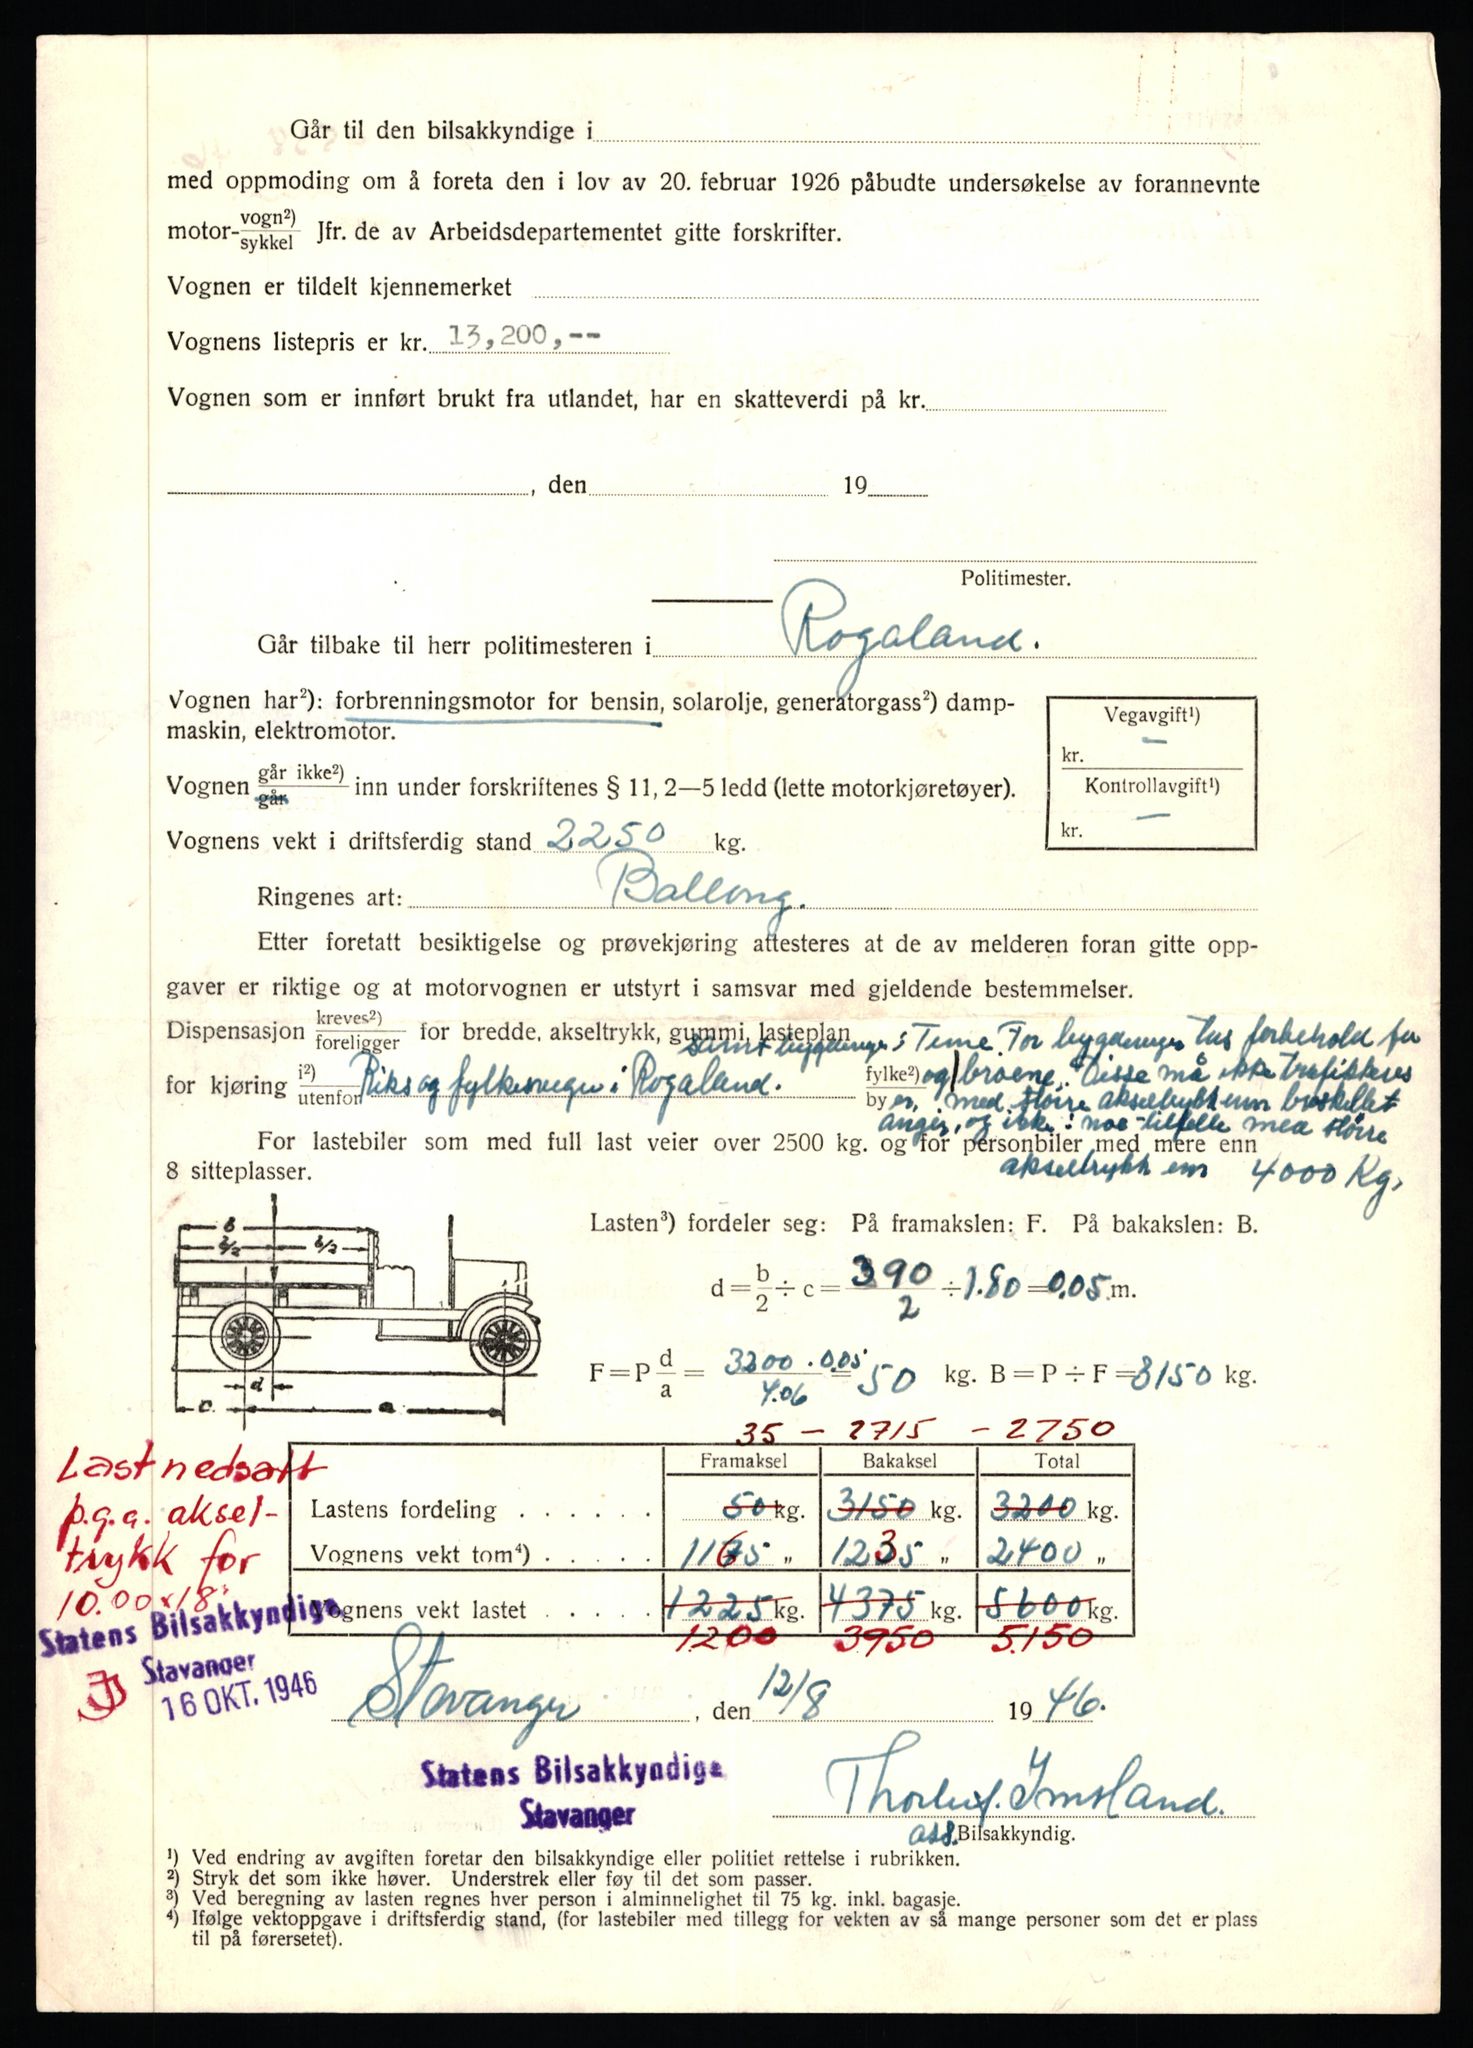 Går til den bilsakkyndige i
med oppmoding om å foreta den i lov av 20. februar 1926 påbudte undersøkelse av forannevnte
motor- vogn²) / sykkel Jfr. de av Arbeidsdepartementet gitte forskrifter.
Vognen er tildelt kjennemerket
Vognens listepris er kr. 13,200,--
Vognen som er innført brukt fra utlandet, har en skatteverdi på kr.
, den 19
Politimester.
Går tilbake til herr politimesteren i Rogaland.
Vognen har²): forbrenningsmotor for bensin, solarolje, generatorgass²) damp-
maskin, elektromotor.
Vegavgift¹)
kr. —
Kontrollavgift¹)
kr. —
Vognen går ikke²) / går inn under forskriftenes § 11, 2—5 ledd (lette motorkjøretøyer).
Vognens vekt i driftsferdig stand 2250 kg.
Ringenes art: Ballong.
Etter foretatt besiktigelse og prøvekjøring attesteres at de av melderen foran gitte opp-
gaver er riktige og at motorvognen er utstyrt i samsvar med gjeldende bestemmelser.
Dispensasjon kreves²) / foreligger for bredde, akseltrykk, gummi, lasteplan
samt bygdeveger i Time. For bygdeveger tas forbehold for
for kjøring i²) / utenfor Riks og fylkesveger i Rogaland. fylke²) / by og broene. Disse må ikke trafikkeres
med større akseltrykk enn
angir, og ikke i noe tilfelle med større
akseltrykk enn 4000 Kg.
For lastebiler som med full last veier over 2500 kg. og for personbiler med mere enn
8 sitteplasser.
b
b/2 b/2
d
c. a
Lasten³) fordeler seg: På framakslen: F. På bakakslen: B.
d = b/2 ÷ c = 390/2 ÷ 1.80 = 0.05 m.
F = P d/a = 3200 . 0.05 / 4.06 = 50 kg. B = P ÷ F = 3150 kg.
35 — 2715 — 2750
Framaksel Bakaksel Total
Lastens fordeling . . . . . . 50 kg. 3150 kg. 3200 kg.
Vognens vekt tom⁴) . . . . . 1165 „ 1235 „ 2400 „
Vognens vekt lastet . . . . . 1225 kg. 4375 kg. 5600 kg.
1200 3950 5150
Last nedsatt
p.g.a. aksel-
trykk for
10.00 x 18"
Statens Bilsakkyndige
Stavanger
16 OKT. 1946
Stavanger, den 12/8 1946.
Statens Bilsakkyndige
Stavanger
Thorleif Imsland.
ass. Bilsakkyndig.
¹) Ved endring av avgiften foretar den bilsakkyndige eller politiet rettelse i rubrikken.
²) Stryk det som ikke høver. Understrek eller føy til det som passer.
³) Ved beregning av lasten regnes hver person i alminnelighet til 75 kg. inkl. bagasje.
⁴) Ifølge vektoppgave i driftsferdig stand, (for lastebiler med tillegg for vekten av så mange personer som det er plass
til på førersetet).